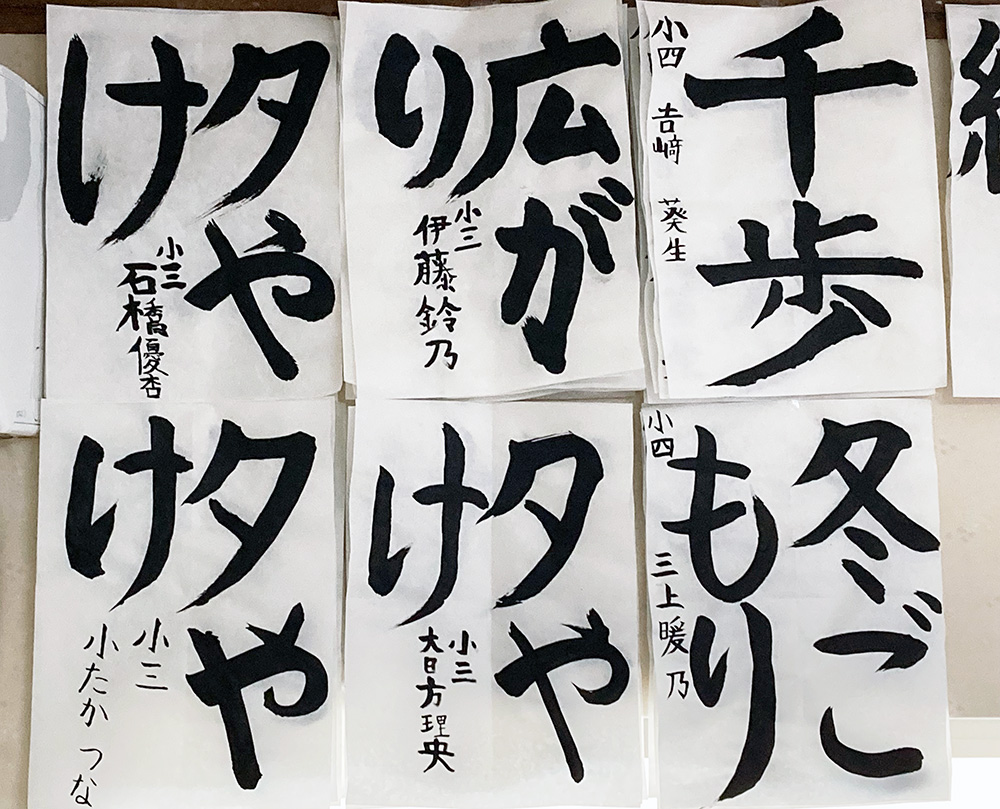 千歩
小四 吉﨑 葵生
広が
り
小三
伊藤鈴乃
夕や
け
小三
石橋優杏
冬ご
もり
小四 三上暖乃
夕や
け
小三
大日方理央
夕や
け
小三
小たか つな